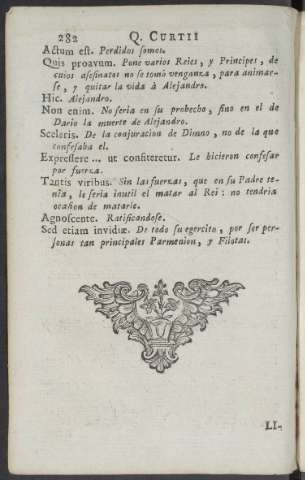 282 Q. CURTII
Actum est. Perdidos somos.
Quis proavum. Pone varios Reies, y Principes, de
cuios asesinatos no se tomó venganza, para animar-
se, y quitar la vida à Alejandro.
Hic. Alejandro.
Non enim. No seria en su probecho, sino en el de
Dario la muerte de Alejandro.
Sceleris. De la conjuracion de Dimno, no de la que
confesaba el.
Expressere ... ut confiteretur. Le hicieron confesar
por fuerza.
Tantis viribus. Sin las fuerzas, que en su Padre te-
nia, le seria inutil el matar al Rei: no tendria
ocasion de matarle.
Agnoscente. Ratificandose.
Sed etiam invidiæ. De todo su egercito, por ser per-
sonas tan principales Parmenion, y Filotas.
LI-